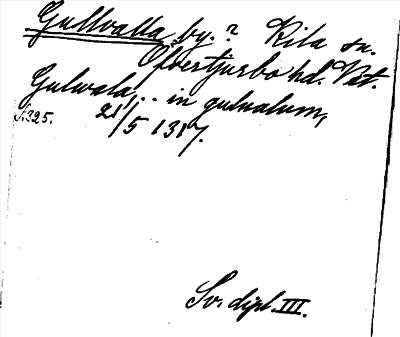 Gullvalla by.? Kila sn.
Ofvertjurbo hd. Vstm.
Gulwala,.. in gulualum,
N:325. 21/5 1317.
Sv. dipl. III.